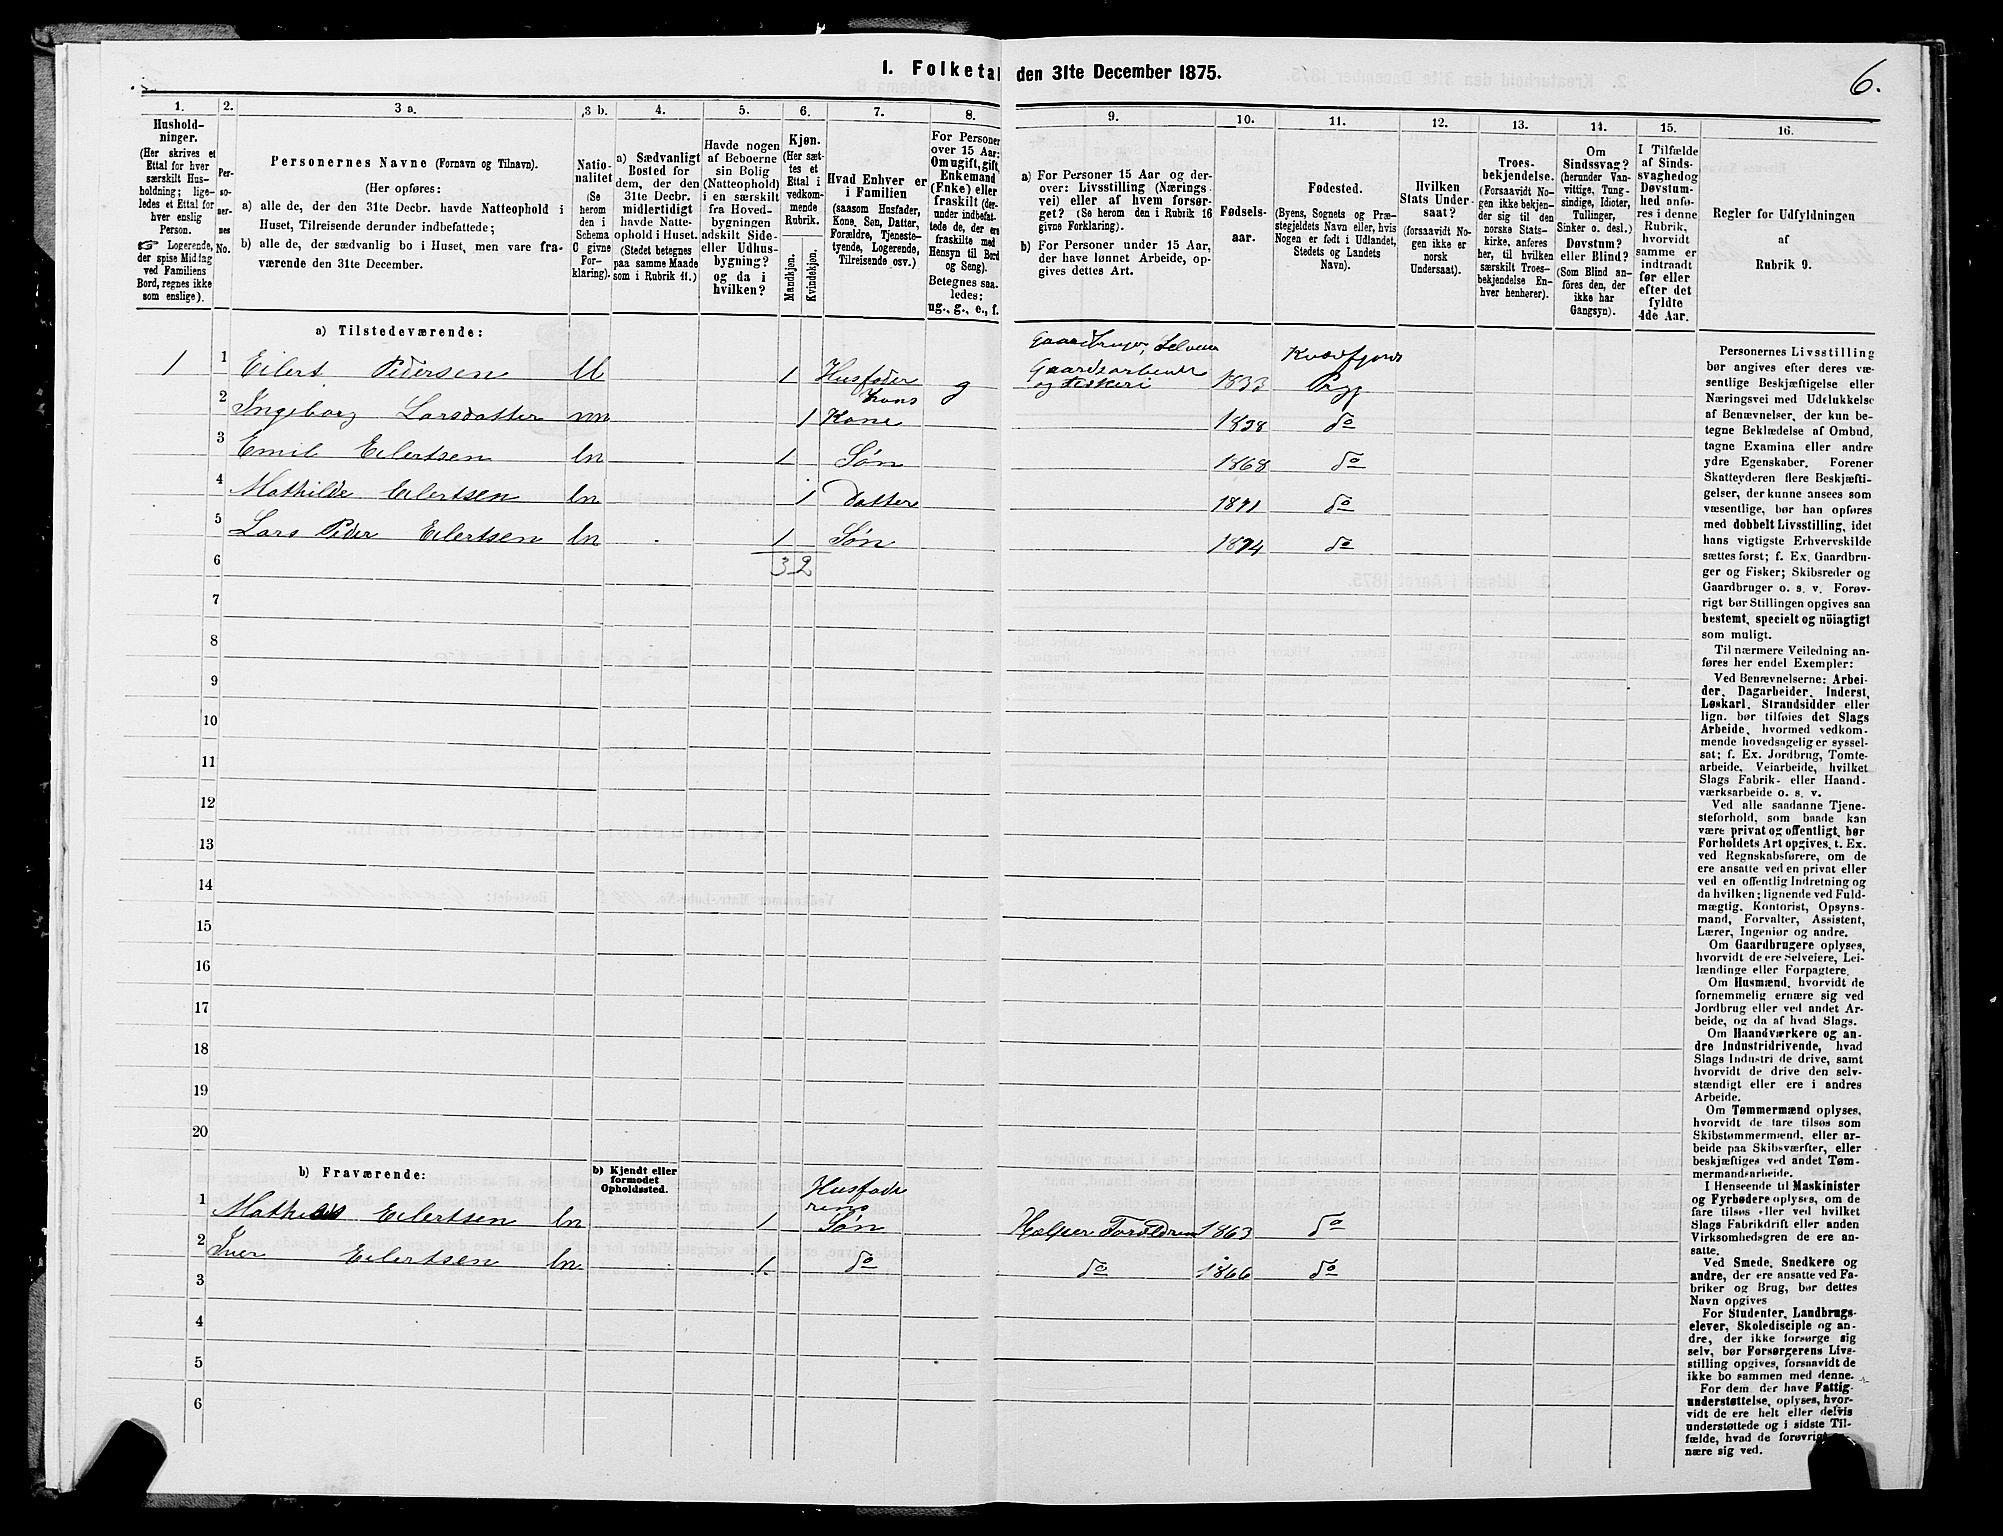 I. Folketal den 31te December 1875.
6.
1.
Hushold-
ninger.
(Her skrives et
Ettal for hver
særskilt Hus-
holdning; lige-
ledes et Ettal for
hver enslig
Person.
Logerende,
der spise Middag
ved Familiens
Bord, regnes ikke
som enslige).
2.
Per-
so-
ner-
nes
No.
3 a.
Personernes Navne (Fornavn og Tilnavn).
(Her opføres:
a) alle de, der den 31te Decbr. havde Natteophold i
Huset, Tilreisende derunder indbefattede;
b) alle de, der sædvanlig bo i Huset, men vare fra-
værende den 31te December.
3 b.
Natio-
nalitet
(Se
herom
den i
Schema
C givne
For-
klaring).
4.
a) Sædvanligt
Bosted for
dem, der den
31te Decbr.
midlertidigt
havde Natte-
ophold i Huset.
(Stedet betegnes
paa samme Maade
som i Rubrik 11.)
5.
Havde nogen
af Beboerne
sin Bolig
(Natteophold)
i en særskilt
fra Hoved-
bygningen
adskilt Side-
eller Udhus-
bygning?
og da i
hvilken?
6.
Kjøn.
(Her sæt-
tes et
Ettal i
vedkom-
mende
Rubrik.
Mandkjøn.
Kvindekjøn.
7.
Hvad Enhver er
i Familien
(saasom Husfader,
Kone, Søn, Datter,
Forældre, Tjeneste-
tyende, Logerende,
Tilreisende osv.)
8.
For Personer
over 15 Aar:
Om ugift, gift,
Enkemand
(Enke) eller
fraskilt (der-
under indbefat-
tede de, der ere
fraskilte med
Hensyn til Bord
og Seng).
Betegnes saa-
ledes:
ug., g., e., f.
9.
a) For Personer 15 Aar og der-
over: Livsstilling (Nærings-
vei) eller af hvem forsør-
get? (Se herom den i Rubrik 16
givne Forklaring).
b) For Personer under 15 Aar,
der have lønnet Arbeide, op-
gives dettes Art.
10.
Fødsels-
aar.
11.
Fødested.
(Byens, Sognets og Præ-
stegjeldets Navn eller, hvis
Nogen er født i Udlandet,
Stedets og Landets
Navn).
12.
Hvilken
Stats Under-
saat?
(forsaavidt No-
gen ikke er
norsk
Undersaat).
13.
Troes-
bekjendelse.
(Forsaavidt No-
gen ikke bekjen-
der sig til den
norske Stats-
kirke, anføres
her, til hvilken
særskilt Troes-
bekjendelse En-
hver henhører).
14.
Om
Sindssvag?
(herunder Van-
vittige, Tung-
sindige, Idioter,
Tullinger,
Sinker o. desl.)
Døvstum?
eller Blind?
(Som Blind an-
føres den, der
ikke har
Gangsyn).
15.
I Tilfælde
af Sinds-
svaghed og
Døvstum-
hed anfø-
res i denne
Rubrik,
hvorvidt
samme er
indtraadt
før eller
efter det
fyldte
4de Aar.
16.
Regler for Udfyldningen
af
Rubrik 9.
a) Tilstedeværende:
Gaardbruger, Selveier Kvædfjords
1 1 Eilert Pedersen 1 Husfader g Gaardsarbeide
og Fiskeri 1833 Prgj
2 Ingeborg Larsdatter nn 1 hans Kone 1838 do
3 Emil Eilertsen ln 1 Søn 1868 do
4 Mathilde Eilertsen ln 1 Datter 1871 do
5 Lars Peder Eilertsen ln 1 Søn 1874 do
6 3 2
7
8
9
10
11
12
13
14
15
16
17
18
19
20
b) Fraværende:
b) Kjendt eller
formodet
Opholdssted.
1 Eilertsen ln 1 Søn Hjelper Forældrene 1863 do
2 Iver Eilertsen ln 1 do do 1866 do
3
4
5
6
Personernes Livsstilling
bør angives efter deres væ-
sentlige Beskjæftigelse eller
Næringsvei med Udelukkelse
af Benævnelser, der kun be-
tegne Beklædelse af Ombud,
tagne Examina eller andre
ydre Egenskaber. Forener
Skatteyderen flere Beskjæfti-
gelser, der kunne ansees som
væsentlige, bør han opføres
med dobbelt Livsstilling, idet
hans vigtigste Erhvervskilde
sættes først; f. Ex. Gaardbru-
ger og Fisker; Skibsreder og
Gaardbruger o. s. v. Forøv-
rigt bør Stillingen opgives saa
bestemt, specielt og nöiagtigt
som muligt.
Til nærmere Veiledning an-
føres her endel Exempler:
Ved Benævnelserne: Arbei-
der, Dagarbeider, Inderst,
Løskarl, Strandsidder eller
lign. bør tilføies det Slags
Arbeide, hvormed vedkom-
mende hovedsagelig er syssel-
sat; f. Ex. Jordbrug, Tomte-
arbeide, Veiarbeide, hvilket
Slags Fabrik- eller Haand-
værksarbeide o. s. v.
Ved alle saadanne Tjene-
steforhold, som baade kan
være privat og offentligt, bør
Forholdets Art opgives, t. Ex.
ved Regnskabsførere, om de
ere ansatte ved en privat eller
ved en offentlig Indretning og
da hvilken; lignende ved Fuld-
mægtig, Kontorist, Opsyns-
mand, Forvalter, Assistent,
Lærer, Ingeniør og andre.
Om Gaardbrugere oplyses,
hvorvidt de ere Selveiere, Lei-
lændinge eller Forpagtere.
Om Husmænd, hvorvidt de
fornemmelig ernære sig ved
Jordbrug eller ved andet Ar-
beide, og da af hvad Slags.
Om Haandværkere og an-
dre Industridrivende, hvad
Slags Industri de drive, samt
hvorvidt de drive den selv-
stændigt eller ere i andres
Arbeide.
Om Tømmermænd oplyses,
hvorvidt de fare tilsøs som
Skibstømmermænd, eller ar-
beide paa Skibsværfter, eller
beskjæftiges ved andet Tøm-
mermandarbeide.
I Henseende til Maskinister
og Fyrbødere oplyses, om de
fare tilsøs eller ved hvilket
Slags Fabrikdrift eller anden
Virksomhedsgren de ere an-
satte.
Ved Smede, Snedkere og
andre, der ere ansatte ved Fa-
briker og Brug, bør dettes
Navn opgives
For Studenter, Landbrugs-
elever, Skoledisciple og an-
dre, der ikke forsørge sig
selv, bør Forsørgerens Livs-
stilling opgives, forsaavidt de
ikke bo sammen med denne.
For dem, der have Fattig-
understøttelse, oplyses, hvor-
vidt de ere helt eller delvis
understøttede og i sidste Til-
fælde, hvad de forøvrigt er-
nære sig ved.